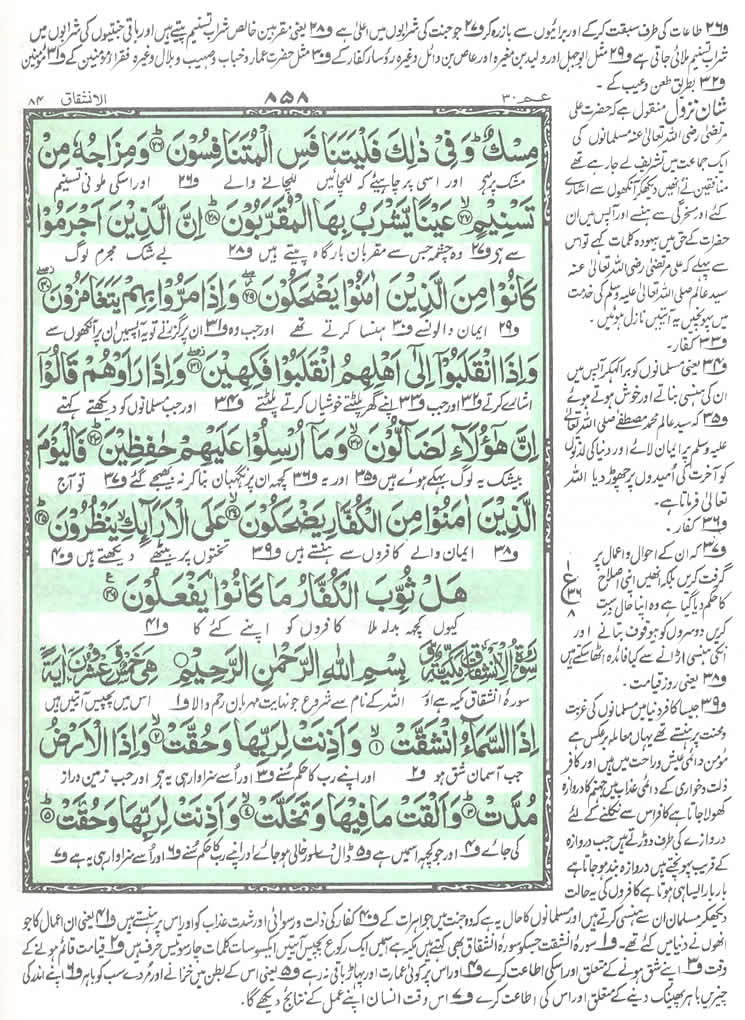 و۲۶ طاعات کی طرف سبقت کرکے اور برائیوں سے باز رہ کر و۲۷ جو جنت کی شرابوں میں اعلیٰ ہے و۲۸ یعنی مقربین خالص شراب تسنیم پیتے ہیں اور باقی جنتیوں کی شرابوں میں
شراب تسنیم ملائی جاتی ہے و۲۹ مثل ابوجہل اور ولید بن مغیرہ اور عاص بن وائل وغیرہ رؤسا کفار کے و۳۰ مثل حضرت عمار و خباب و صہیب و بلال وغیرہ فقراء مؤمنین کے و۳۱ مؤمنین
و۳۲ بطریق طعن و عیب کے۔
عمّ ۳۰
۸۵۸
الانشقاق ۸۴
مِسْكٌ ؕ وَ فِیْ ذٰلِكَ فَلْیَتَنَافَسِ الْمُتَنَافِسُوْنَ ؕ۲۶ وَ مِزَاجُهٗ مِنْ
مشک پر ہے اور اسی پر چاہیئے کہ للچائیں للچانے والے و۲۶ اور اسکی ملونی تسنیم
تَسْنِیْمٍ ۙ۲۷ عَیْنًا یَّشْرَبُ بِهَا الْمُقَرَّبُوْنَ ؕ۲۸ اِنَّ الَّذِیْنَ اَجْرَمُوْا
سے ہے و۲۷ وہ چشمہ جس سے مقربان بارگاہ پیتے ہیں و۲۸ بے شک مجرم لوگ
كَانُوْا مِنَ الَّذِیْنَ اٰمَنُوْا یَضْحَكُوْنَ ۲۹ وَ اِذَا مَرُّوْا بِهِمْ یَتَغَامَزُوْنَ ۳۰
و۲۹ ایمان والوں سے و۳۰ ہنسا کرتے تھے اور جب وہ و۳۱ ان پر گزرتے تو یہ آپس میں ان پر آنکھوں سے
وَ اِذَا انْقَلَبُوْۤا اِلٰۤى اَهْلِهِمُ انْقَلَبُوْا فَكِهِیْنَ ۳۱ وَ اِذَا رَاَوْهُمْ قَالُوْۤا
اشارے کرتے و۳۲ اور جب و۳۳ اپنے گھر پلٹتے خوشیاں کرتے پلٹتے و۳۴ اور جب مسلمانوں کو دیکھتے کہتے
اِنَّ هٰۤؤُلَآءِ لَضَآلُّوْنَ ۙ۳۲ وَ مَاۤ اُرْسِلُوْا عَلَیْهِمْ حٰفِظِیْنَ ؕ۳۳ فَالْیَوْمَ
بیشک یہ لوگ بہکے ہوئے ہیں و۳۵ اور یہ و۳۶ کچھ ان پر نگہبان بنا کر نہ بھیجے گئے و۳۷ تو آج
الَّذِیْنَ اٰمَنُوْا مِنَ الْكُفَّارِ یَضْحَكُوْنَ ۙ۳۴ عَلَى الْاَرَآىِٕكِ ۙ یَنْظُرُوْنَ ؕ۳۵
و۳۸ ایمان والے کافروں سے ہنستے ہیں و۳۹ تختوں پر بیٹھے دیکھتے ہیں و۴۰
هَلْ ثُوِّبَ الْكُفَّارُ مَا كَانُوْا یَفْعَلُوْنَ ۳۶
کیوں کچھ بدلہ ملا کافروں کو اپنے کئے کا و۴۱
سُوْرَةُ الْاِنْشِقَاقِ مَكِّیَّةٌ بِسْمِ اللّٰهِ الرَّحْمٰنِ الرَّحِیْمِ هِیَ خَمْسٌ وَّعِشْرُوْنَ اٰیَةً
سورۂ انشقاق مکیہ ہے اور اللہ کے نام سے شروع جو نہایت مہربان رحم والا و۱ اس میں پچیس آیتیں ہیں
اِذَا السَّمَآءُ انْشَقَّتْ ۙ۱ وَ اَذِنَتْ لِرَبِّهَا وَ حُقَّتْ ۙ۲ وَ اِذَا الْاَرْضُ
جب آسمان شق ہو و۲ اور اپنے رب کا حکم سنے و۳ اور اُسے سزاوار ہی یہ ہے اور جب زمین دراز
مُدَّتْ ۙ۳ وَ اَلْقَتْ مَا فِیْهَا وَ تَخَلَّتْ ۙ۴ وَ اَذِنَتْ لِرَبِّهَا وَ حُقَّتْ ؕ۵
کی جائے و۴ اور جو کچھ اسمیں ہے و۵ ڈال دے اور خالی ہو جائے اور اپنے رب کا حکم سنے و۶ اور اُسے سزاوار ہی یہ ہے و۷
شان نزول منقول ہے کہ حضرت علی
مرتضیٰ رضی اللہ تعالیٰ عنہ مسلمانوں کی
ایک جماعت میں تشریف لے جا رہے تھے
منافقین نے انھیں دیکھکر آنکھوں سے اشارے
کئے اور مسخرگی سے ہنسے اور آپس میں ان
حضرات کے حق میں بیہودہ کلمات کہے تو اس
سے پہلے کہ علی مرتضیٰ رضی اللہ تعالیٰ عنہ
سید عالم صلی اللہ تعالیٰ علیہ وسلم کی خدمت
میں پہونچیں یہ آیتیں نازل ہوئیں۔
و۳۳ کفار۔
و۳۴ یعنی مسلمانوں کو برا کہکر آپس میں
ان کی ہنسی بناتے اور خوش ہوتے ہوئے
و۳۵ کہ سید عالم محمد مصطفےٰ صلی اللہ تعالیٰ
علیہ وسلم پر ایمان لائے اور دنیا کی لذتوں
کو آخرت کی امیدوں پر چھوڑ دیا اللہ
تعالیٰ فرماتا ہے۔
و۳۶ کفار۔
و۳۷ کہ ان کے احوال و اعمال پر
گرفت کریں بلکہ انھیں اپنی اصلاح
کا حکم دیا گیا ہے وہ اپنا حال درست
کریں دوسروں کو بیوقوف بتانے اور
انکی ہنسی اڑانے سے کیا فائدہ اٹھا سکتے ہیں
و۳۸ یعنی روز قیامت۔
و۳۹ جیسا کافر دنیا میں مسلمانوں کی غربت
و محنت پر ہنستے تھے یہاں معاملہ برعکس ہے
مؤمن دائمی عیش و راحت میں ہیں اور کافر
ذلت و خواری کے دائمی عذاب میں جہنم کا دروازہ
کھولا جاتا ہے کافر اس سے نکلنے کے لئے
دروازے کی طرف دوڑتے ہیں جب دروازہ
کے قریب پہونچتے ہیں دروازہ بند ہو جاتا ہے
بار بار ایسا ہی ہوتا ہے کافروں کی یہ حالت
۱
ع
۳۶
۸
دیکھکر مسلمان ان سے ہنسی کرتے ہیں اور مسلمانوں کا حال یہ ہے کہ وہ جنت میں جواہرات کے و۴۰ کفار کی ذلت و رسوائی اور شدت عذاب کو اور اس پر ہنستے ہیں و۴۱ یعنی ان اعمال کا جو
انھوں نے دنیا میں کئے تھے۔ و۱ سورۂ انشقت جسکو سورۂ انشقاق بھی کہتے ہیں مکیہ ہے اسمیں ایک رکوع پچیس آیتیں ایکسو سات کلمات چار سو تیس حرف ہیں و۲ قیامت قائم ہونے کے
وقت و۳ اپنے شق ہونے کے متعلق اور اسکی اطاعت کرے و۴ اور اس پر کوئی عمارت اور پہاڑ باقی نہ رہے و۵ یعنی اس کے بطن میں خزانے اور مُردے سب کو باہر و۶ اپنے اندر کی
چیزیں باہر پھینک دینے کے متعلق اور اس کی اطاعت کرے و۷ اس وقت انسان اپنے عمل کے نتائج دیکھے گا۔